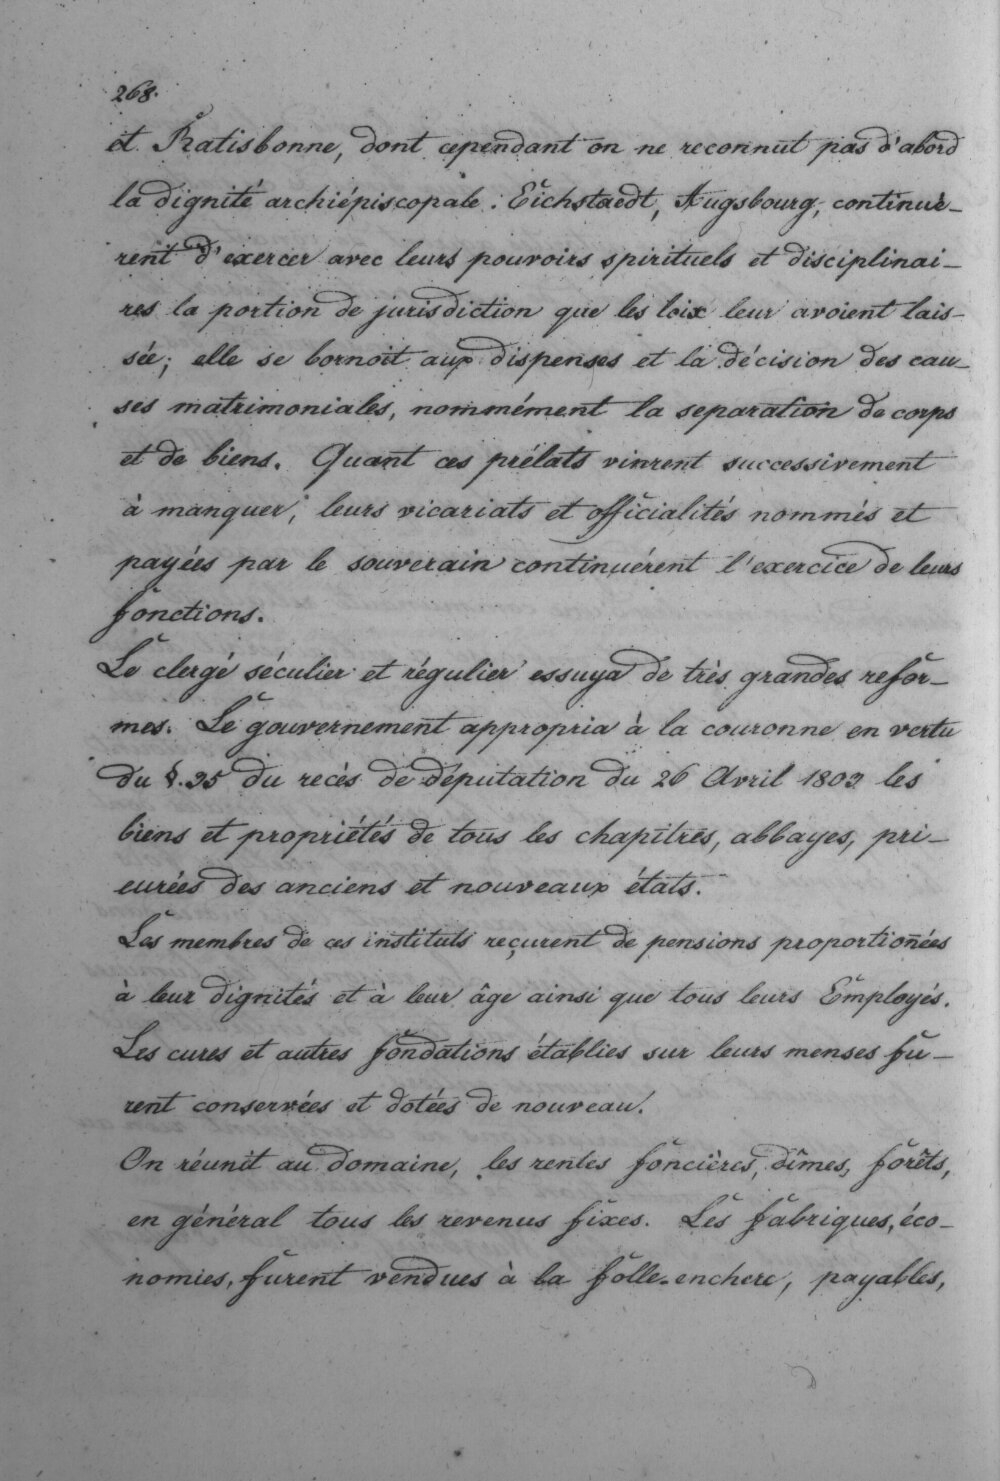 268.
et Ratisbonne, dont cependant on ne reconnut pas d'abord
la dignité archiépiscopale. Eichstaedt, Augsbourg, continuè-
rent d'exercer avec leurs pouvoirs spirituels et disciplinai-
res la portion de jurisdiction que les loix leur avoient lais-
sée; elle se bornoit aux dispenses et la décision des cau-
ses matrimoniales, nommément la separation de corps
et de biens. Quant ces prélats vinrent successivement
à manquer, leurs vicariats et officialités nommés et
payées par le souverain continuérent l'exercice de leurs
fonctions.
Le clergé séculier et régulier essuya de très grandes refor-
mes. Le gouvernement appropria à la couronne en vertu
du §. 35 du recès de députation du 26 Avril 1803 les
biens et propriétés de tous les chapitres, abbayes, pri-
eurées des anciens et nouveaux états.
Les membres de ces instituts reçurent de pensions proportioñées
à leur dignités et à leur âge ainsi que tous leurs Employés.
Les cures et autres fondations établies sur leurs menses fu-
rent conservées et dotées de nouveau.
On réunit au domaine, les rentes foncières, dîmes, forêts,
en général tous les revenus fixes. Les fabriques, éco-
nomies, furent vendues à la folle-enchere, payables,